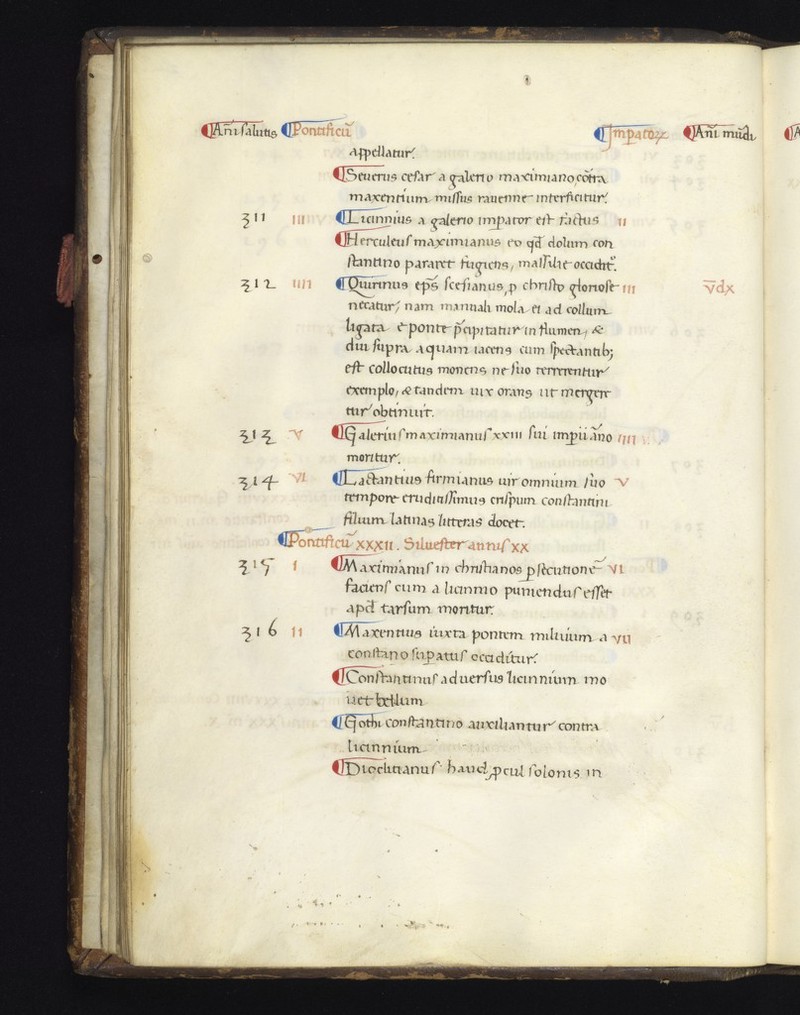 Ani salutis Pontificũ Imperatoꝝ Ani mũdi
appellatur.
Seuerus cesar a galerio maximiano cõtra
maxentium missus rauenne interficitur.
311 III Licinnius a galerio imperator est factus II
Herculeus maximianus eo qđ dolum con
stantino pararet fugiens, massilie occidit᷑.
312 IIII Quirinus ep̃s scesianus, ꝓ christo gloriose III v̄dx
necatur, nam manuali mola ei ad collum
ligata e ponte p̃cipitatur in flumen, &
diu supra aquam iacens cum spectantibꝫ
est collocutus monens ne suo terrerentur
exemplo, & tandem uix orans ut mergere
tur obtinuit.
313 V Galerius maximianus XXIII sui imperii ãno IIII
moritur.
314 VI Lactantius firmianus uir omnium suo V
tempore eruditissimus crispum constantini
filium latinas litteras docet.
Pontificũ XXXII. Siluester annis XX
315 I Maximianus in christianos ꝑsecutionẽ VI
faciens cum a licinnio puniendus esset
apđ tarsum moritur.
316 II Maxentius iuxta pontem miluium a VII
constãtino suꝑatus occiditur.
Constantinus aduersus licinnium mo
uet bellum
Gothi constantino auxiliantur contra
licinnium
Dioclitianus haud ꝓcul solonis in